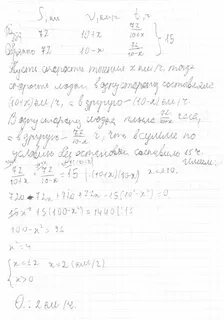 S, км V, км/ч t, ч
Туда 72 10+x 72/(10+x)
Обратно 72 10-x 72/(10-x) } 15
Пусть скорость течения x км/ч, тогда
скорость лодки в одну сторону составляет
(10+x) км/ч, а в другую - (10-x) км/ч.
В одну сторону лодка плыла 72/(10+x) часов,
в другую - 72/(10-x) ч, что в сумме по
условию без остановки составило 15 ч.
72/(10+x) + 72/(10-x) = 15 |·(10+x)(10-x) x≠±10.
720-72x+720+72x-15(10²-x²)=0
15(100-x²)=1440 |:15
100-x²=96
x²=4
{ x=±2 x=2 (км/ч)
x>0
О.: 2 км/ч.